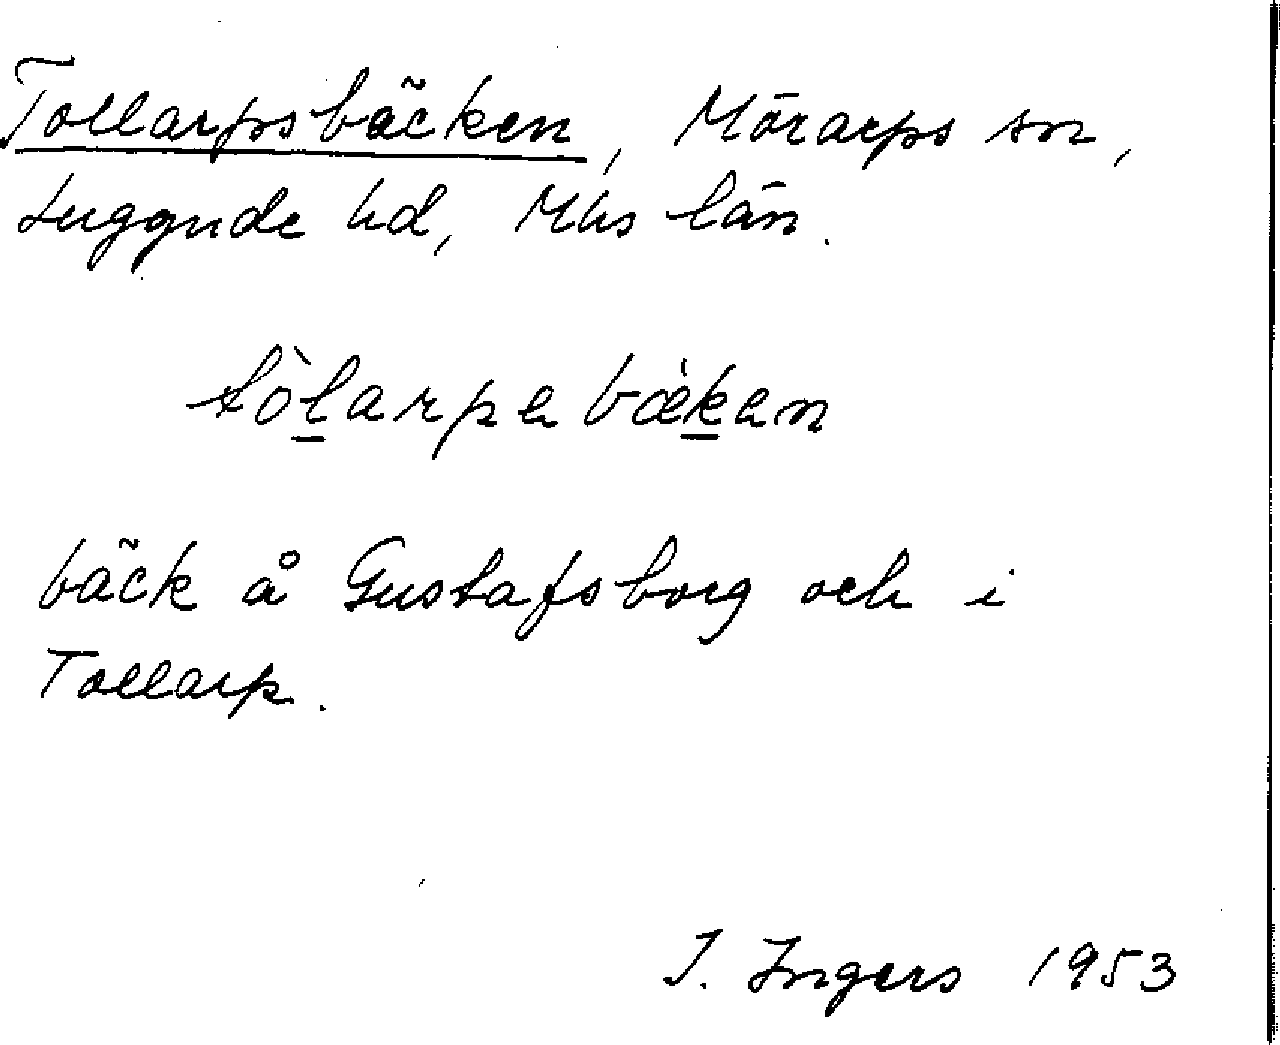 Tollarpsbäcken, Mörarps sn,
Luggude hd, Mhs län.
tòlarpa bækan
bäck å Gustafsborg och i
Tollarp.
I. Ingers 1953